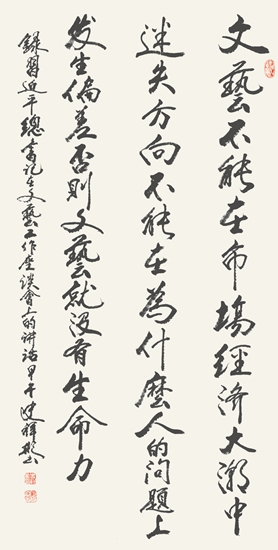 文藝不能在市場經济大潮中
迷失方向不能在為什麼人的问題上
发生偏差否則文藝就没有生命力
録習近平總書记在文藝工作座谈會上的讲话甲午建祥